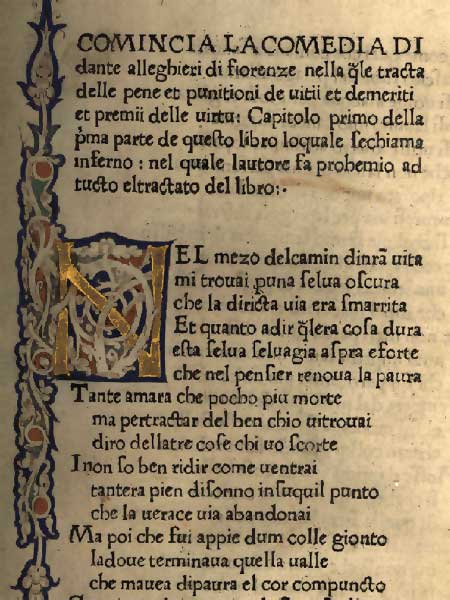 COMINCIA LA COMEDIA DI
dante alleghieri di fiorenze nella q̃le tracta
delle pene et punitioni de uitii et demeriti
et premii delle uirtu: Capitolo primo della
p̃ma parte de questo libro loquale sechiama
inferno: nel quale lautore fa prohemio ad
tucto eltractato del libro:·
NEL mezo delcamin dinrã uita
mi trouai puna selua oscura
che la diricta uia era smarrita
Et quanto adir q̃lera cosa dura
esta selua seluagia aspra eforte
che nel pensier renoua la paura
Tante amara che pocho piu morte
ma pertractar del ben chio uitrouai
diro dellatre cose chi uo scorte
I non so ben ridir come uentrai
tantera pien disonno insuquil punto
che la uerace uia abandonai
Ma poi che fui appie dum colle gionto
ladoue terminaua quella ualle
che mauea dipaura el cor compuncto